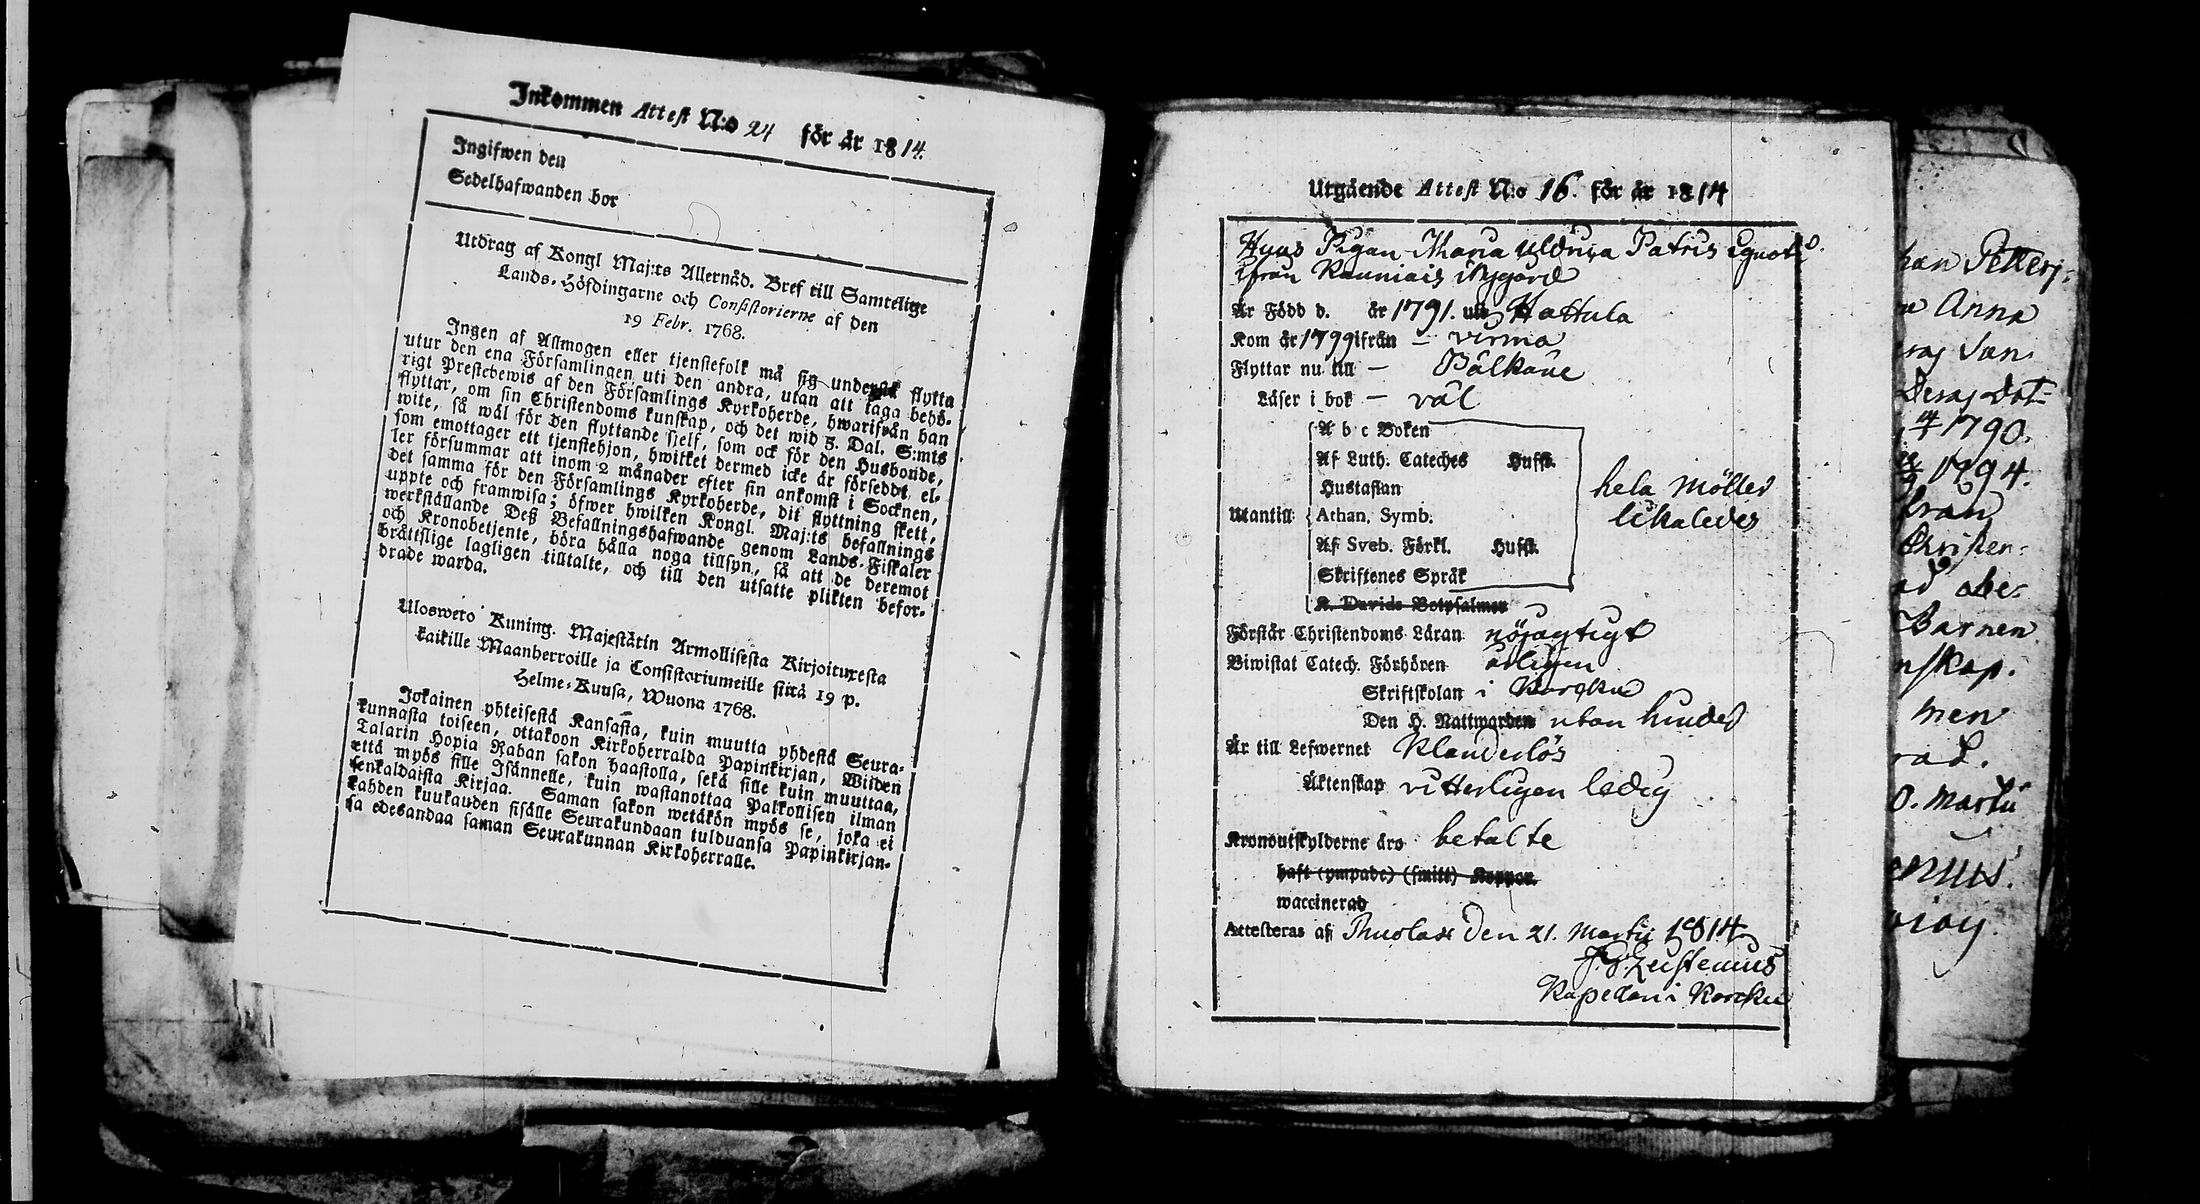 Inkommen Attest N:o 24 för år 1814.
Ingifwen den
Sedelhafwanden bor
Utdrag af Kongl Maj:ts Allernåd. Bref till Samtelige
Lands-Höfdingarne och Consistorierne af den
19 Febr. 1768.
Ingen af Allmogen eller tjenstefolk må sig understå flytta
utur den ena Församlingen uti den andra, utan att taga behö-
rigt Prestebewis af den Församlings Kyrkoherde, hwarifrån han
flyttar, om sin Christendoms kunskap, och det wid 3. Dal. S:mts
wite, så wäl för den flyttande sjelf, som ock för den Husbonde,
som emottager ett tjenstehjon, hwilket dermed icke är försedt, el-
ler försummar att inom 2 månader efter sin ankomst i Socknen,
det samma för den Församlings Kyrkoherde, dit flyttning skett,
uppte och framwisa; öfwer hwilken Kongl. Maj:ts befallnings
werkställande Deß Befallningshafwande genom Lands-Fiskaler
och Kronobetjente, böra hålla noga tillsyn, så att de deremot
bråttslige lagligen tilltalte, och till den utsatte plikten befor-
drade warda.
Uloswero Kuning. Majestätin Armollisesta Kirjoituxesta
kaikille Maanherroille ja Consistoriumeille siitä 19 p.
Helme-Kuusa, Wuona 1768.
Jokainen yhteisestä Kansasta, kuin muutta yhdestä Seura-
kunnasta toiseen, ottakoon Kirkoherralda Papinkirjan, Wiiden
Talarin Hopia Rahan sakon haastolla, sekä sille kuin muuttaa,
että myös sille Isännelle, kuin wastanottaa Palkollisen ilman
senkaldaista Kirjaa. Saman sakon wetäkön myös se, joka ei
kahden kuukauden sisälle Seurakundaan tulduansa Papinkirjan-
sa edesandaa saman Seurakunnan Kirkoherralle.
Utgående Attest N:o 16. för år 1814
Pigan Maria Patris
ifrån
Är Född d. år 1791. uti Hattula
Kom år 1799 ifrån – virmo
Flyttar nu till – Pälkäne
Läser i bok – väl
A b c Boken
Af Luth. Cateches Hufst.
Hustaflan
Utantill Athan. Symb.
Af Sveb. Förkl. Hufst.
Skriftenes Språk
K. Davids Botpsalmer
hela
likaledes
Förstår Christendoms Läran nöjagtigt
Biwistat Catech. Förhören årligen
Skriftskolan i
Den H. Nattwarden utan hinder
Är till Lefwernet Klanderlös
Äktenskap vitterligen ledig
Kronoutskylderne äro betalte
haft (ympade) (smitt) Koppor.
waccinerad
Attesteras af den 21. Martii 1814
Kapellan i
Anna
Dot=
1790.
1794.
från
Christen=
Barnen
men